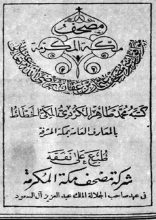 مصحف
مكة المكرمة
كتبه محمد طاهر الكردي المكي الخطاط
بالمعارف العامة بمكة المشرفة
طبع على نفقة
شركة مصحف مكة المكرمة
في عهد صاحب الجلالة الملك عبد العزيز آل السعود